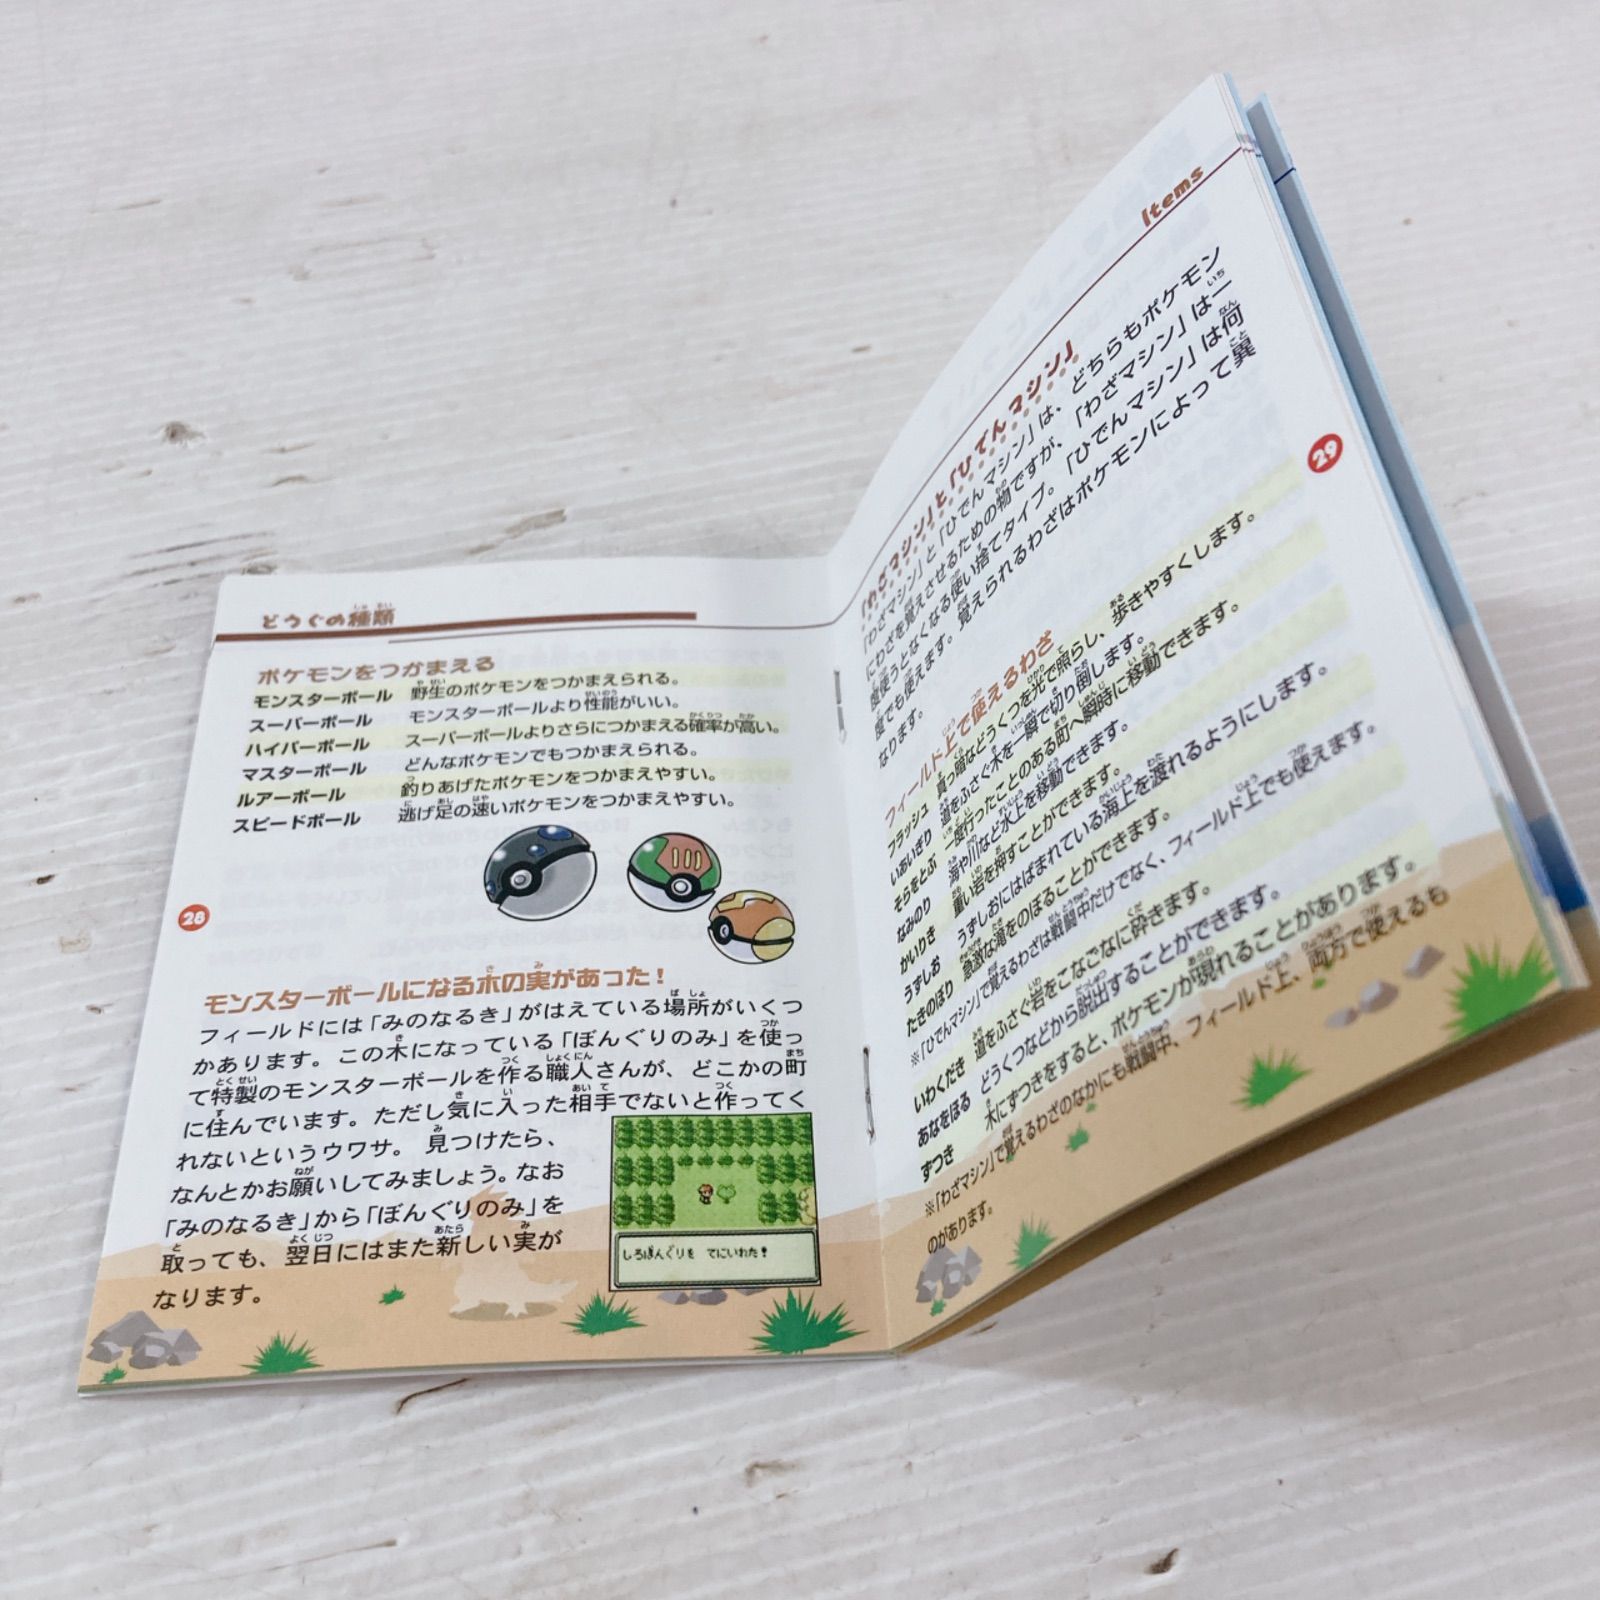 どうぐの種類
ポケモンをつかまえる
モンスターボール 野生のポケモンをつかまえられる。
スーパーボール モンスターボールより性能がいい。
ハイパーボール スーパーボールよりさらにつかまえる確率が高い。
マスターボール どんなポケモンでもつかまえられる。
ルアーボール 釣りあげたポケモンをつかまえやすい。
スピードボール 逃げ足の速いポケモンをつかまえやすい。
28
モンスターボールになる木の実があった！
フィールドには「みのなるき」がはえている場所がいくつ
かあります。この木になっている「ぼんぐりのみ」を使っ
て特製のモンスターボールを作る職人さんが、どこかの町
に住んでいます。ただし気に入った相手でないと作ってく
れないというウワサ。見つけたら、
なんとかお願いしてみましょう。なお
「みのなるき」から「ぼんぐりのみ」を
取っても、翌日にはまた新しい実が
なります。
しろぼんぐりを てにいれた！
Items
「わざマシン」と「ひでんマシン」
「わざマシン」と「ひでんマシン」は、どちらもポケモン
にわざを覚えさせるための物ですが、「わざマシン」は一
度使うとなくなる使い捨てタイプ。「ひでんマシン」は何
度でも使えます。覚えられるわざはポケモンによって異
なります。
29
フィールド上で使えるわざ
フラッシュ 真っ暗などうくつを光で照らし、歩きやすくします。
いあいぎり 道をふさぐ木を一瞬で切り倒します。
そらをとぶ 一度行ったことのある町へ瞬時に移動できます。
なみのり 海や川など水上を移動できます。
かいりき 重い岩を押すことができます。
うずしお うずしおにはばまれている海上を渡れるようにします。
たきのぼり 急激な滝をのぼることができます。
※「ひでんマシン」で覚えるわざは戦闘中だけでなく、フィールド上でも使えます。
いわくだき 道をふさぐ岩をこなごなに砕きます。
あなをほる どうくつなどから脱出することができます。
ずつき 木にずつきをすると、ポケモンが現れることがあります。
※「わざマシン」で覚えるわざのなかにも戦闘中、フィールド上、両方で使えるも
のがあります。